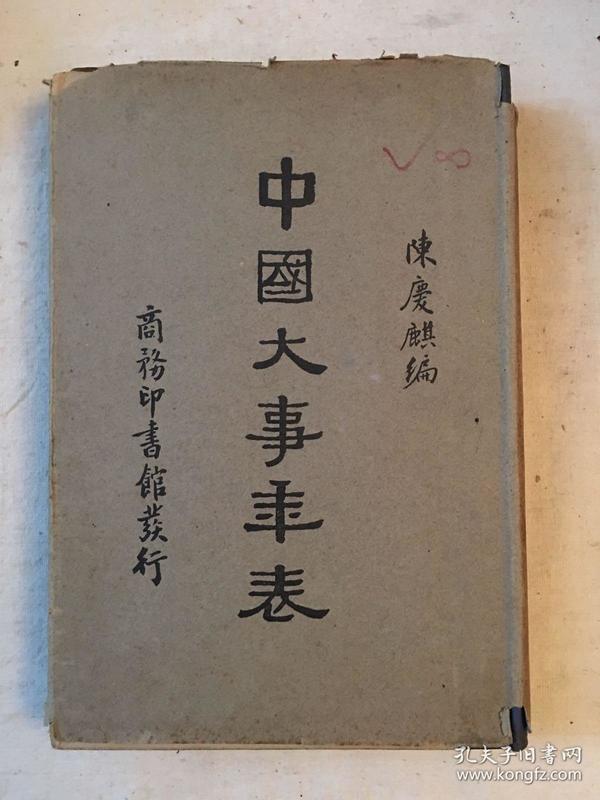 陳慶麒編
中國大事年表
商務印書館發行
孔夫子旧书网
www.kongfz.com